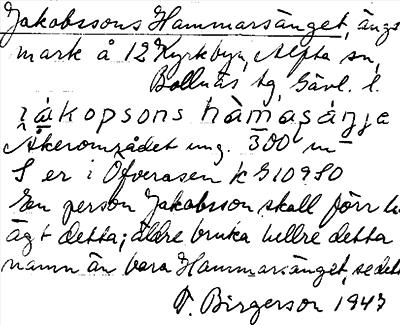 Jakobssons Hammarsänget, ängs
mark å 12 Kyrkbyn, Alfta sn,
Bollnäs tg, Gävl. l.
jákopsons hàmașáŋja
Åkerområdet ung. 300 m
S er i Öfverasen k G109S0
En person Jakobsson skall förr
ägt detta; äldre bruka hellre detta
namn än bara Hammarsänget, se det
F. Birgerson 1943